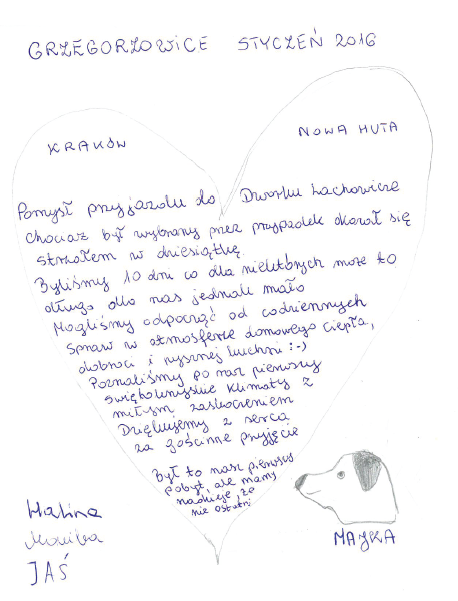 GRZEGORZOWICE STYCZEŃ 2016
KRAKÓW
NOWA HUTA
Pomysł przyjazdu do Dworku Lachowicze
chociaż był wybrany przez przypadek okazał się
strzałem w dziesiątkę.
Byliśmy 10 dni co dla niektórych może to
długo dla nas jednak mało
Mogliśmy odpocząć od codziennych
spraw w atmosferze domowego ciepła,
dobroci i pysznej kuchni :-)
Poznaliśmy po raz pierwszy
świętokrzyskie klimaty z
miłym zaskoczeniem
Dziękujemy z serca
za gościnne przyjęcie
Był to nasz pierwszy
pobyt, ale mamy
nadzieję, że
nie ostatni
Halina
Monika
JAŚ
MAJKA